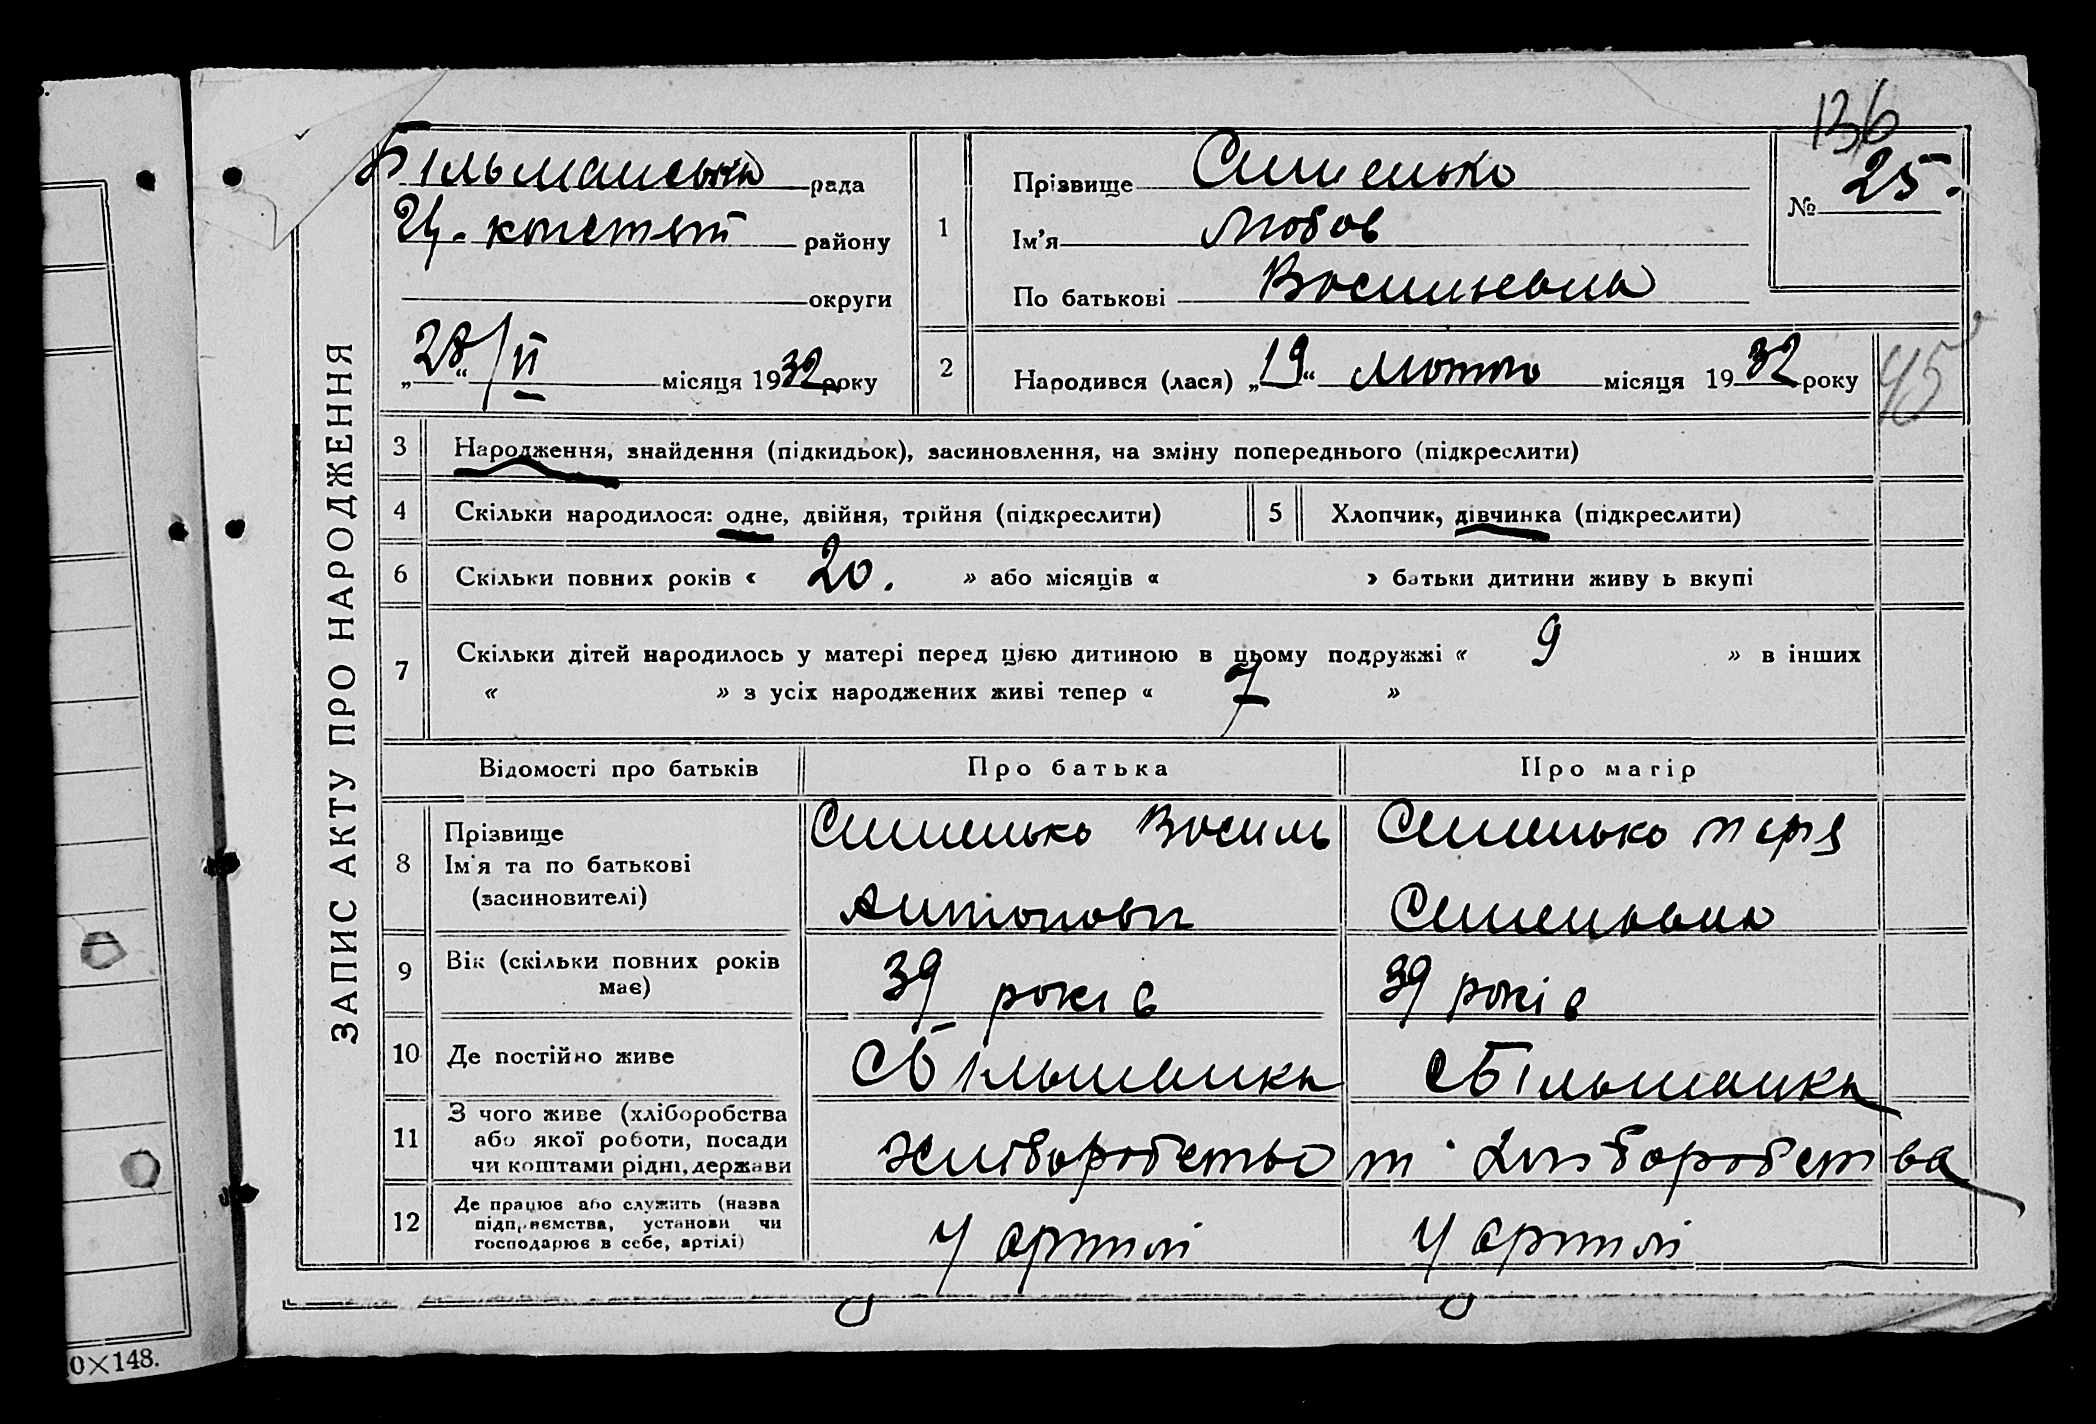 136
Більманська рада
району
округи
„28“ / II місяця 1932 року
1
Прізвище Сименько
Ім’я Любов
По батькові Васильевна
№ 25.
2
Народився (лася) „19“ Лютого місяця 1932 року
45
ЗАПИС АКТУ ПРО НАРОДЖЕННЯ
3 Народження, знайдення (підкидьок), засиновлення, на зміну попереднього (підкреслити)
4 Скільки народилося: одне, двійня, трійня (підкреслити) 5 Хлопчик, дівчинка (підкреслити)
6 Скільки повних років « 20. » або місяців « » батьки дитини живу ь вкупі
7 Скільки дітей народилось у матері перед цією дитиною в цьому подружжі « 9 » в інших
« » з усіх народжених живі тепер « 7 »
Відомості про батьків Про батька Про матір
8 Прізвище
Ім’я та по батькові
(засиновителі)
Сименько Василь
Антонови
Сименько
Семеновна
9 Вік (скільки повних років
має)
39 років 39 років
10 Де постійно живе с Більманка с Більманка
11 З чого живе (хліборобства
або якої роботи, посади
чи коштами рідні, держави
хліборобство хліборобства
12 Де працює або служить (назва
підприємства, установи чи
господарює в себе, артілі)
У артилі У артилі
0×148.